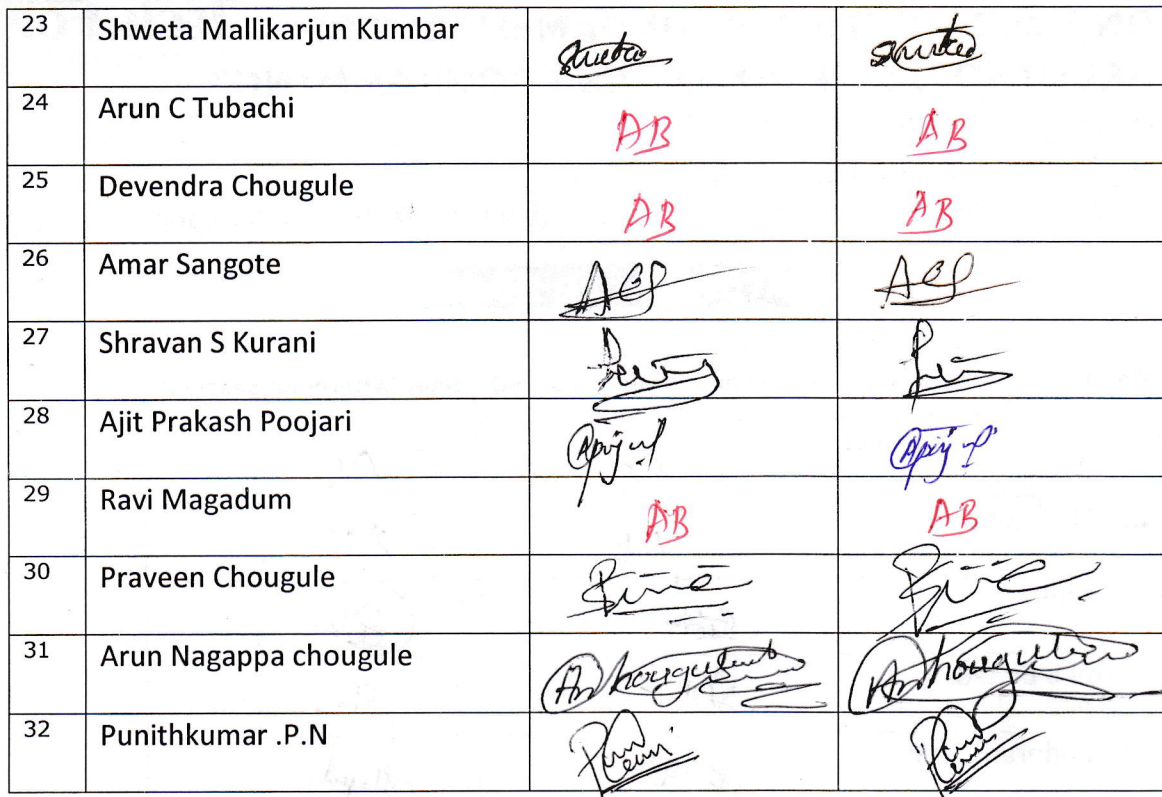 23 Shweta Mallikarjun Kumbar Shweta
24 Arun C Tubachi AB AB
25 Devendra Chougule AB AB
26 Amar Sangote
27 Shravan S Kurani
28 Ajit Prakash Poojari
29 Ravi Magadum AB AB
30 Praveen Chougule
31 Arun Nagappa chougule
32 Punithkumar .P.N